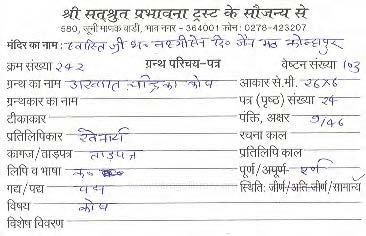 श्री सत्श्रुत प्रभावना ट्रस्ट के सौजन्य से
580, जूनी माणक वाडी, भाव नगर - 364001 फोन: 0278-423207
मंदिर का नाम: स्वस्ति श्री भ. लक्ष्मीसेन दि. जैन मठ कोल्हापुर
क्रम संख्या 242 ग्रन्थ परिचय-पत्र वेष्टन संख्या 103
ग्रन्थ का नाम चन्द्रिका कोष आकार से.मी. 26x6
ग्रन्थकार का नाम पत्र (पृष्ठ) संख्या 24
टीकाकार पंक्ति, अक्षर 9/46
प्रतिलिपिकार रचना काल
कागज/ताड़पत्र ताड़पत्र प्रतिलिपि काल
लिपि व भाषा क. पूर्ण/अपूर्ण- पूर्ण
गद्य/पद्य पद्य स्थिति: जीर्ण/अति जीर्ण/सामान्य
विषय कोष
विशेष विवरण